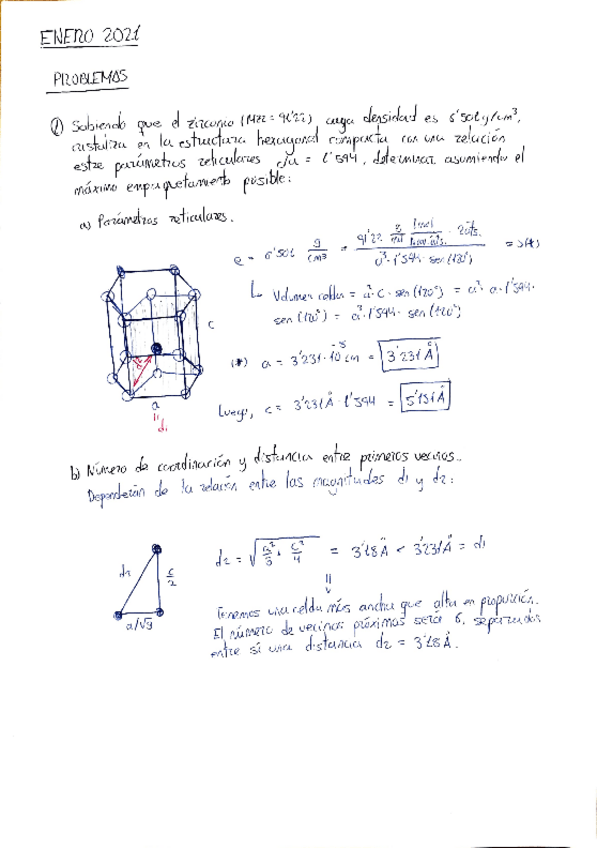 ENERO 2021
PROBLEMAS
① Sabiendo que el zirconio (MZr = 91'22) cuya densidad es 6'50 g/cm³,
cristaliza en la estructura hexagonal compacta con una relación
entre parámetros reticulares c/a = 1'594, determinar asumiendo el
máximo empaquetamiento posible:
a) Parámetros reticulares.
a³ · 1'594 · sen (120°)
Volumen celda = a² · c · sen (120°) = a² · a · 1'594 ·
sen (120°) = a³ · 1'594 · sen (120°)
(*) a = 3'231 · 10⁻⁸ cm = 3'231 Å
Luego, c = 3'231 Å · 1'594 = 5'151 Å
c
a
d₁
b) Número de coordinación y distancia entre primeros vecinos.
Dependerán de la relación entre las magnitudes d₁ y d₂:
d₂ = √(a²/3 + c²/4) = 3'18 Å < 3'231 Å = d₁
d₂
c/2
Tenemos una celda más ancha que alta en proporción.
El número de vecinos próximos será 6, separados
entre sí una distancia d₂ = 3'18 Å.